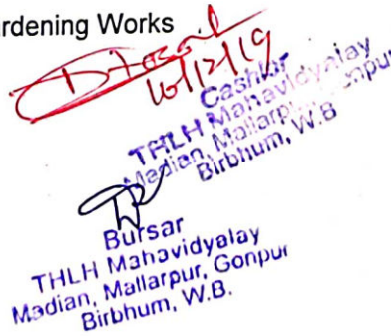 rdening Works
10/12/19
Cashier
THLH Mahavidyalay
Madian, Mallarpur, Gonpur
Birbhum, W.B
Bursar
THLH Mahavidyalay
Madian, Mallarpur, Gonpur
Birbhum, W.B.